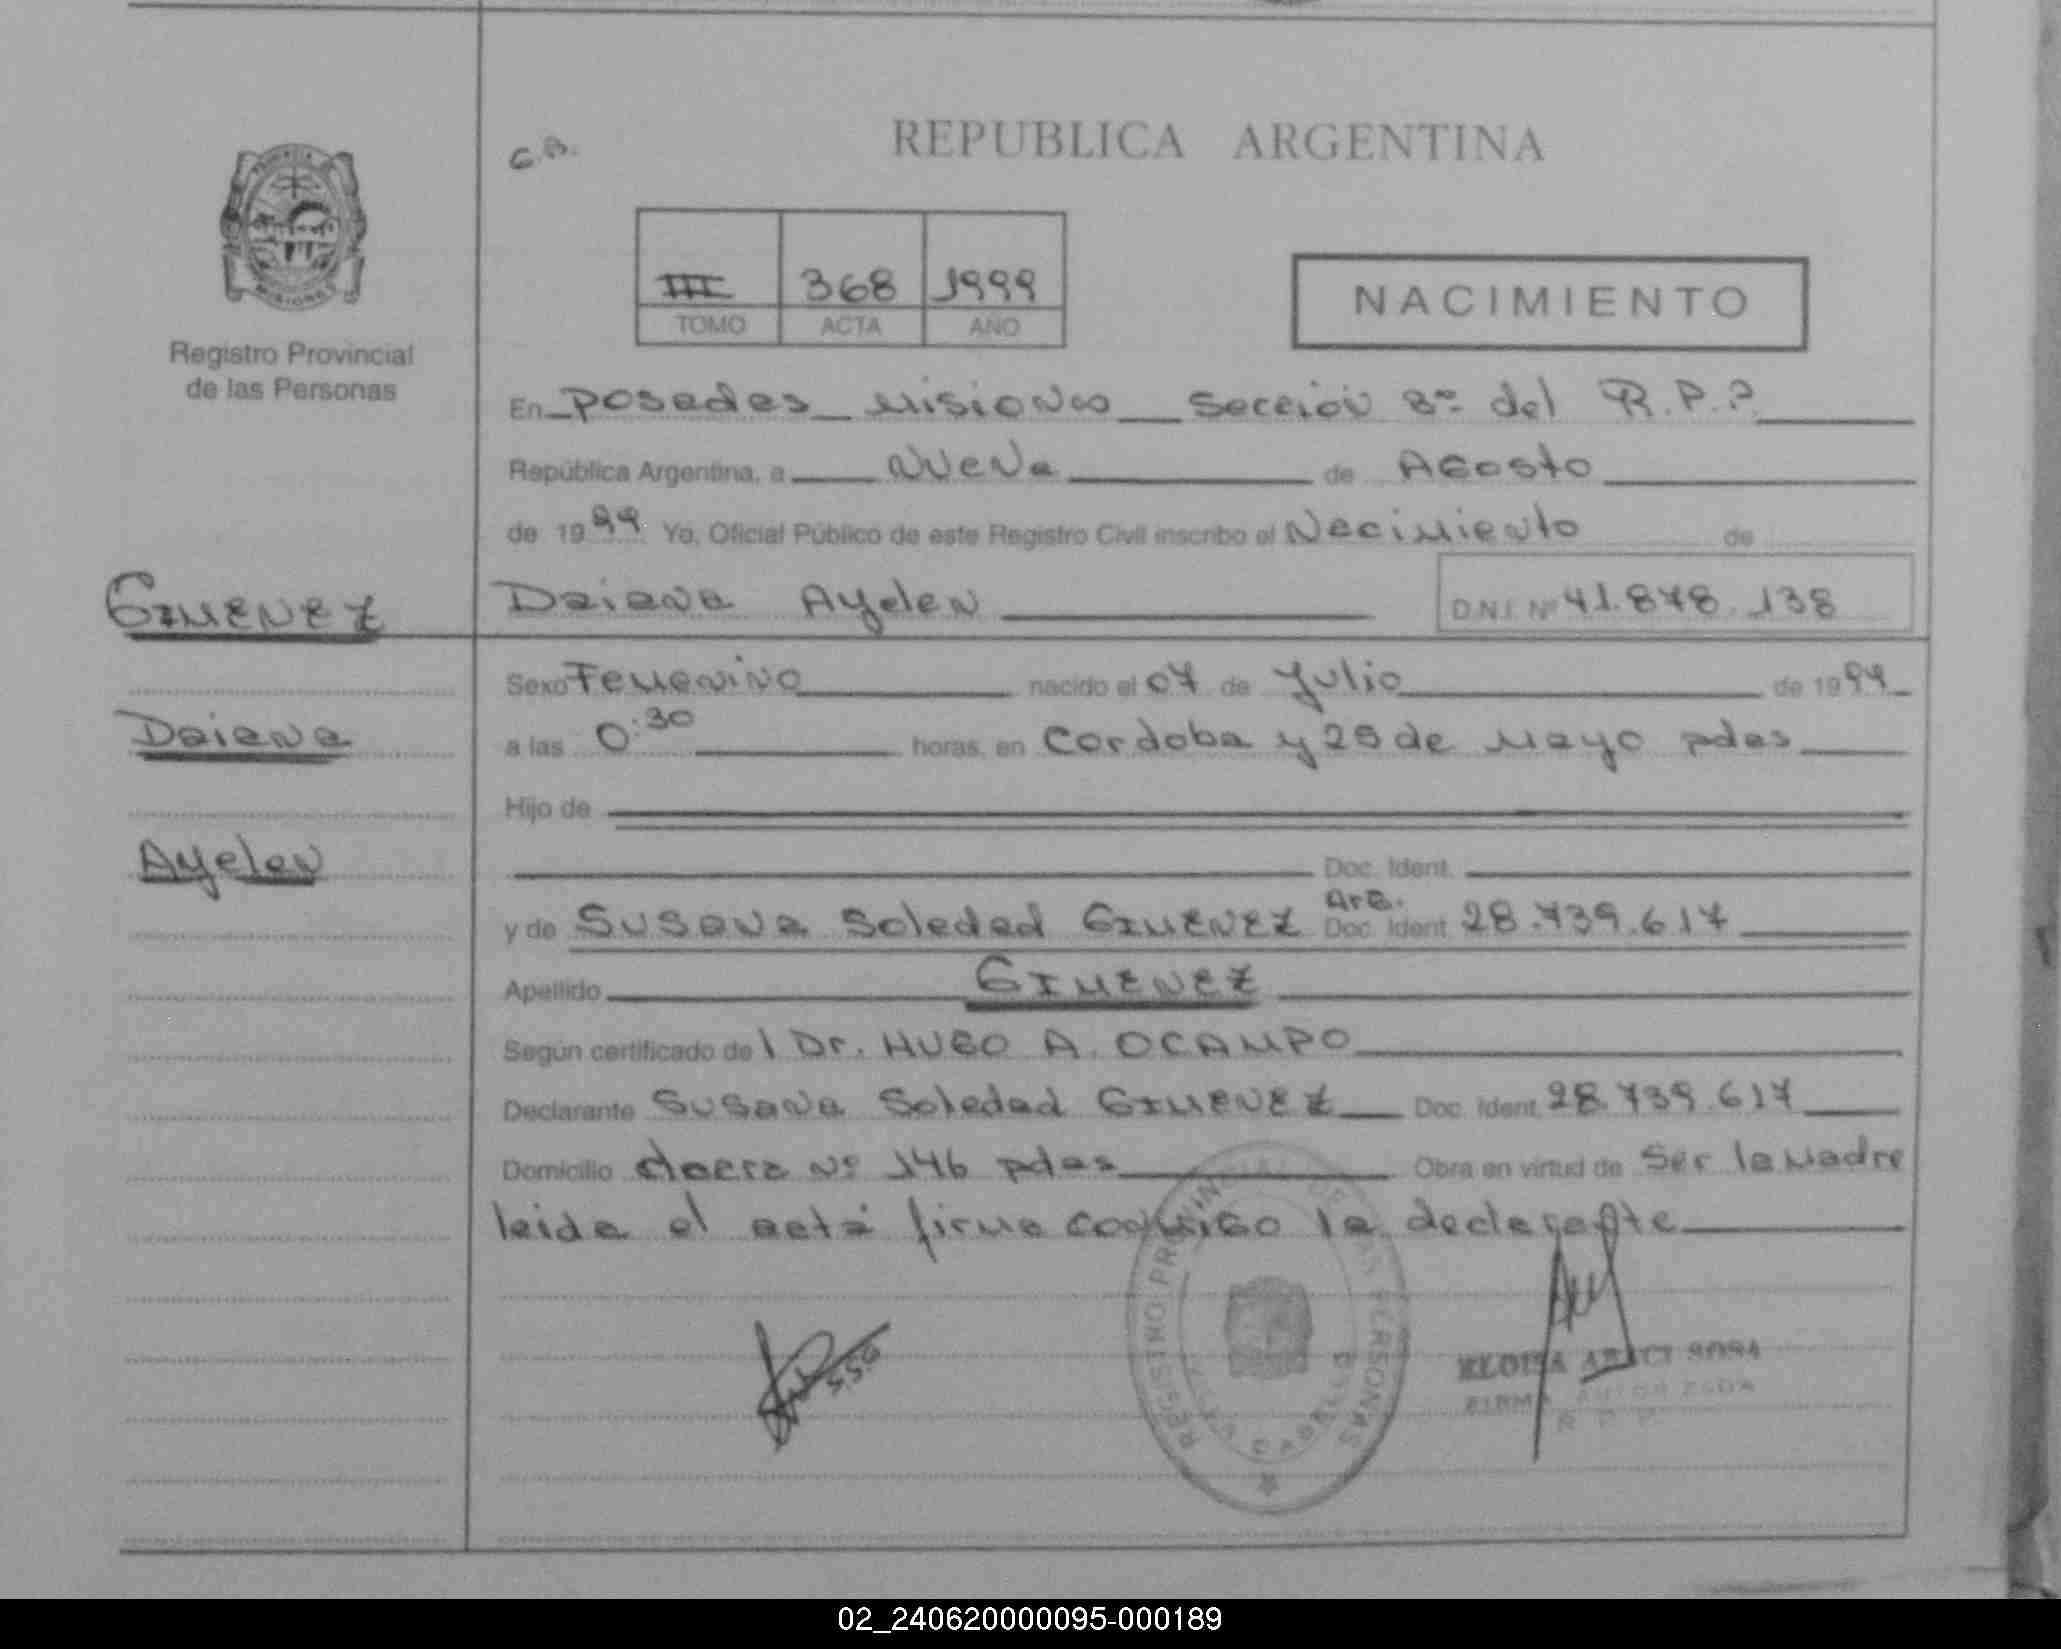 G.B.
REPUBLICA ARGENTINA
III 368 1999
TOMO ACTA AÑO
NACIMIENTO
MISIONES
Registro Provincial
de las Personas
En Posadas Misiones Sección 8ª del R.P.P.
República Argentina, a Nueve de Agosto
de 1999 Yo, Oficial Público de este Registro Civil inscribo el Nacimiento de
GIMENEZ
Daiana Ayelen
D.N.I. Nº 41.878.138
Sexo Femenino nacido el 07 de Julio de 1999
Daiana
a las 0:30 horas, en Cordoba y 25 de Mayo pdas
Hijo de
Ayelen
Doc. Ident.
y de Susana Soledad GIMENEZ Arg. Doc. Ident. 28.739.617
Apellido GIMENEZ
Según certificado del Dr. HUGO A. OCAMPO
Declarante Susana Soledad GIMENEZ Doc. Ident. 28.739.617
Domicilio chacra Nº 146 pdas Obra en virtud de Ser la Madre
leida el acta firma conmigo la declarante
REGISTRO PROVINCIAL DE LAS PERSONAS
S.S.G
FIRMA AUTORIZADA
R P P
02_240620000095-000189